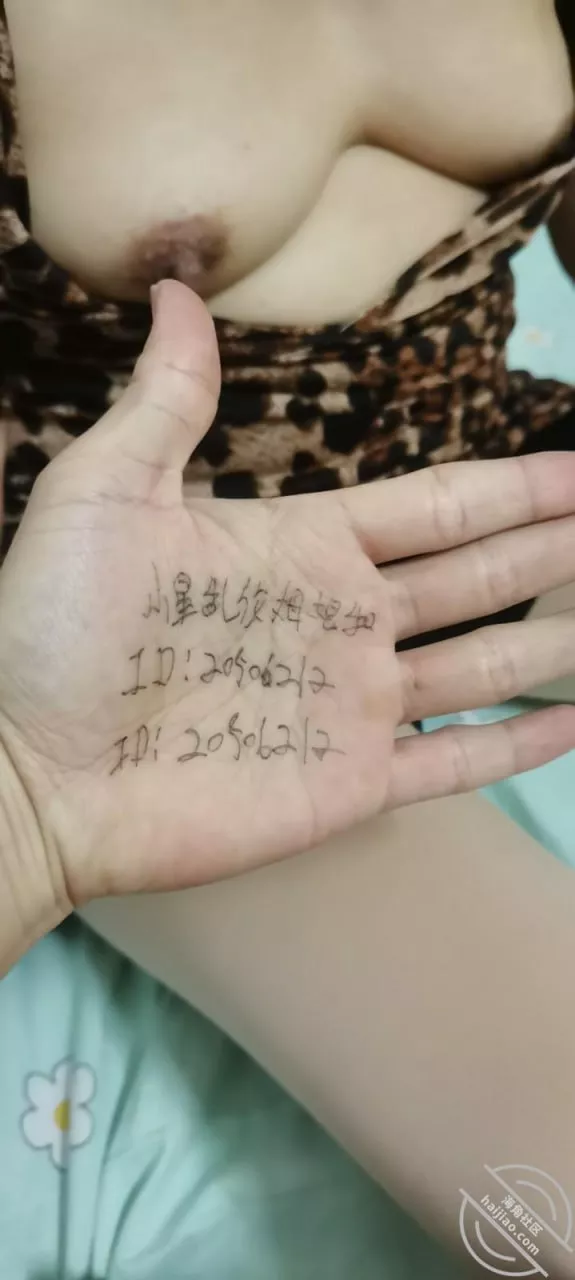 小星乱伦姆
ID:20506212
ID:20506212
海角社区
haijiao.com